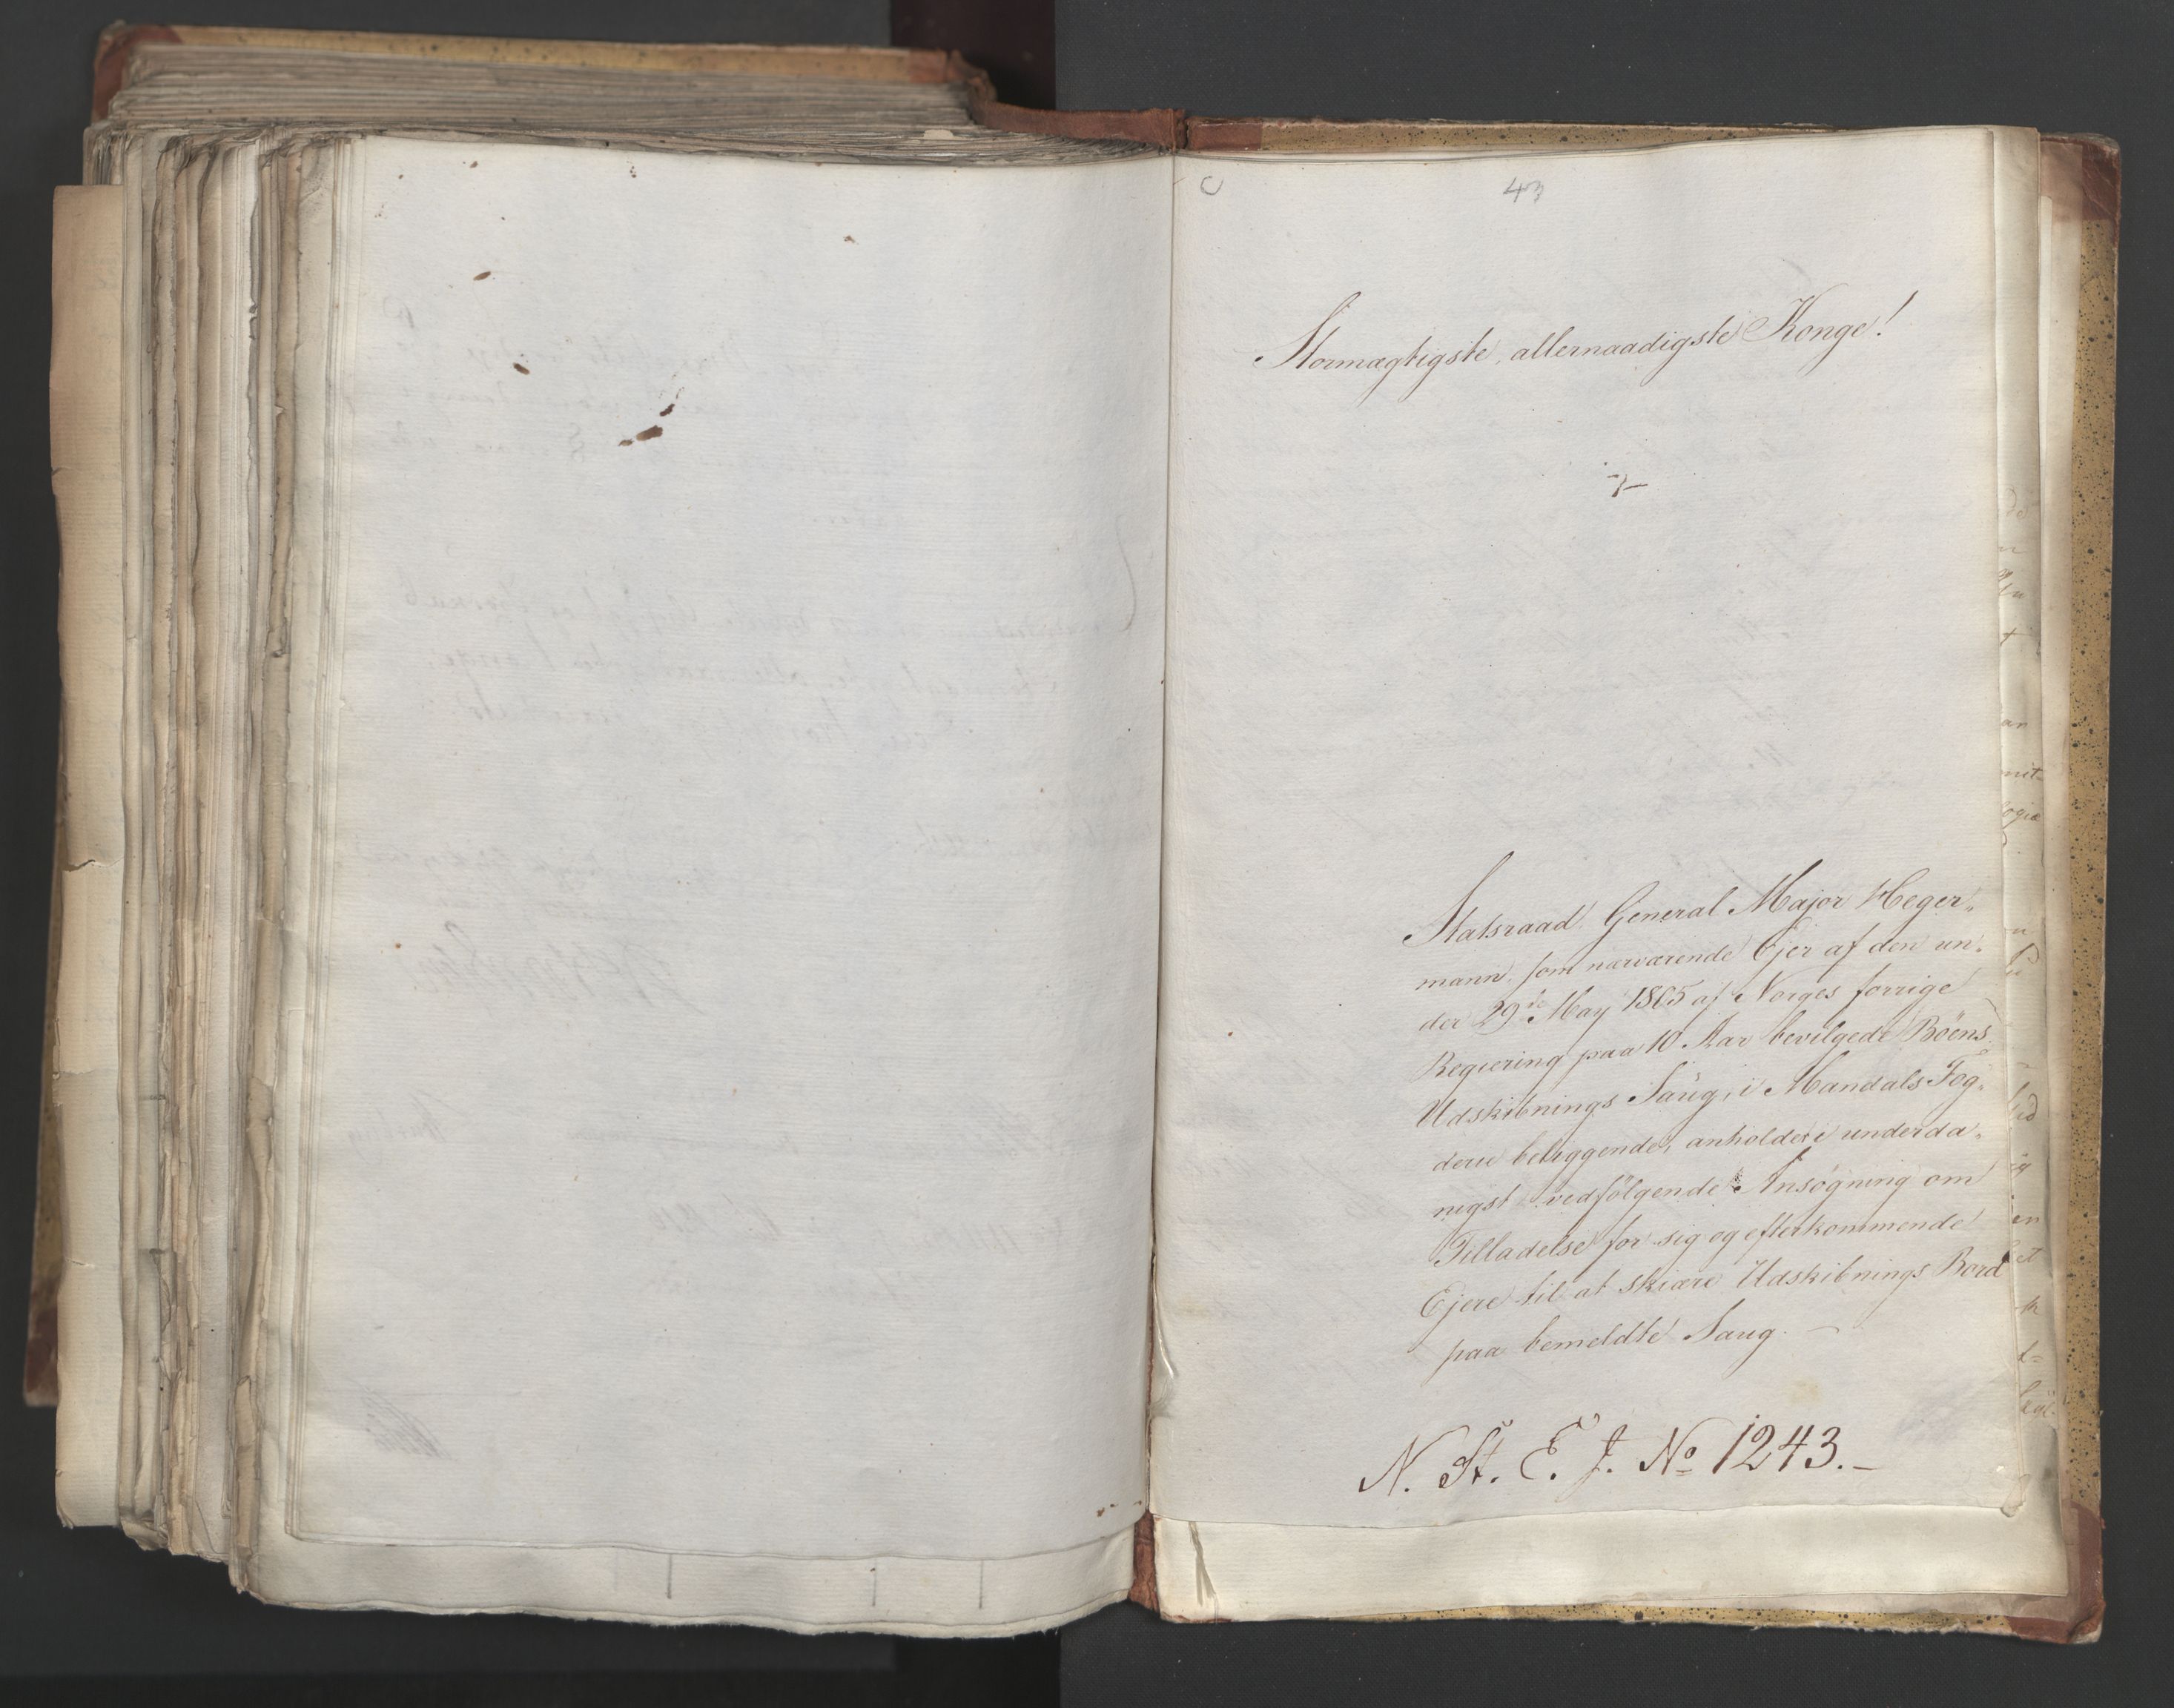 C
43
Stormægtigste, allernaadigste Konge!
Statsraad General Major Heger„
mann, som nærværende Ejer af den un„
der 29de May 1805 af Norges forrige
Regiering paa 10 Aar bevilgede Böens
Udskibnings Saug, i Mandals Fog„
derie beliggende, anholder i underda„
nigst vedfölgende Ansögning om
Tilladelse for sig og efterkommende
Ejere til at skiære Udskibnings Bord
paa bemeldte Saug. —
N. St. E. J. No 1243. —